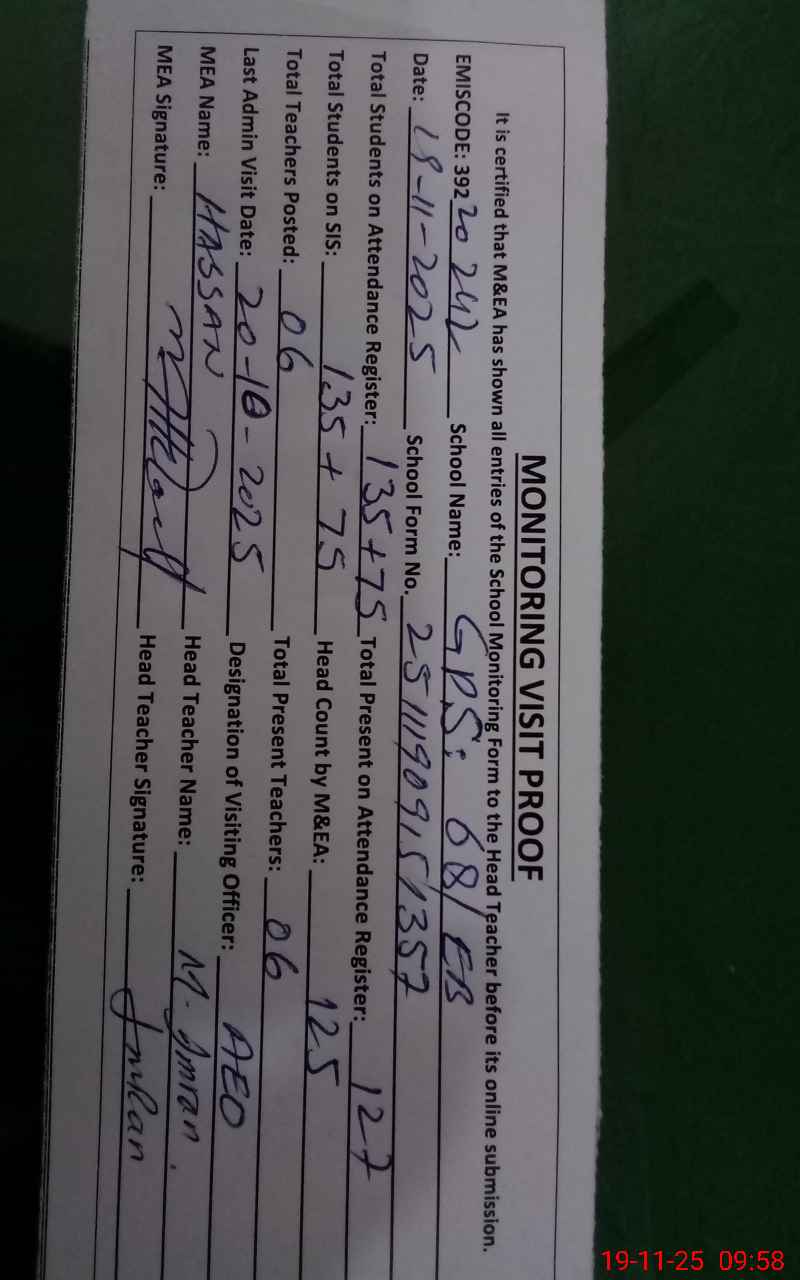 MONITORING VISIT PROOF
It is certified that M&EA has shown all entries of the School Monitoring Form to the Head Teacher before its online submission.
EMISCODE: 39220242 School Name: GPS: 68/EB
Date: 19-11-2025 School Form No. 25111909151357
Total Students on Attendance Register: 135+75 Total Present on Attendance Register: 127
Total Students on SIS: 135+75 Head Count by M&EA: 125
Total Teachers Posted: 06 Total Present Teachers: 06
Last Admin Visit Date: 20-10-2025 Designation of Visiting Officer: AEO
MEA Name: HASSAN Head Teacher Name: M. Imran.
MEA Signature: Head Teacher Signature: Imran
19-11-25 09:58